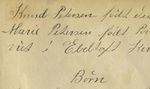 Knud Petersen født
Marie Petersen født
viet i Ebeltoft
Børn